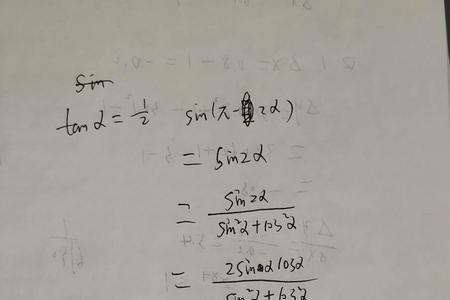 sin
tanα = 1/2 sin(π-2α)
= sin2α
= sin2α / sin²α+cos²α
= 2sinαcosα / sin²α+cos²α